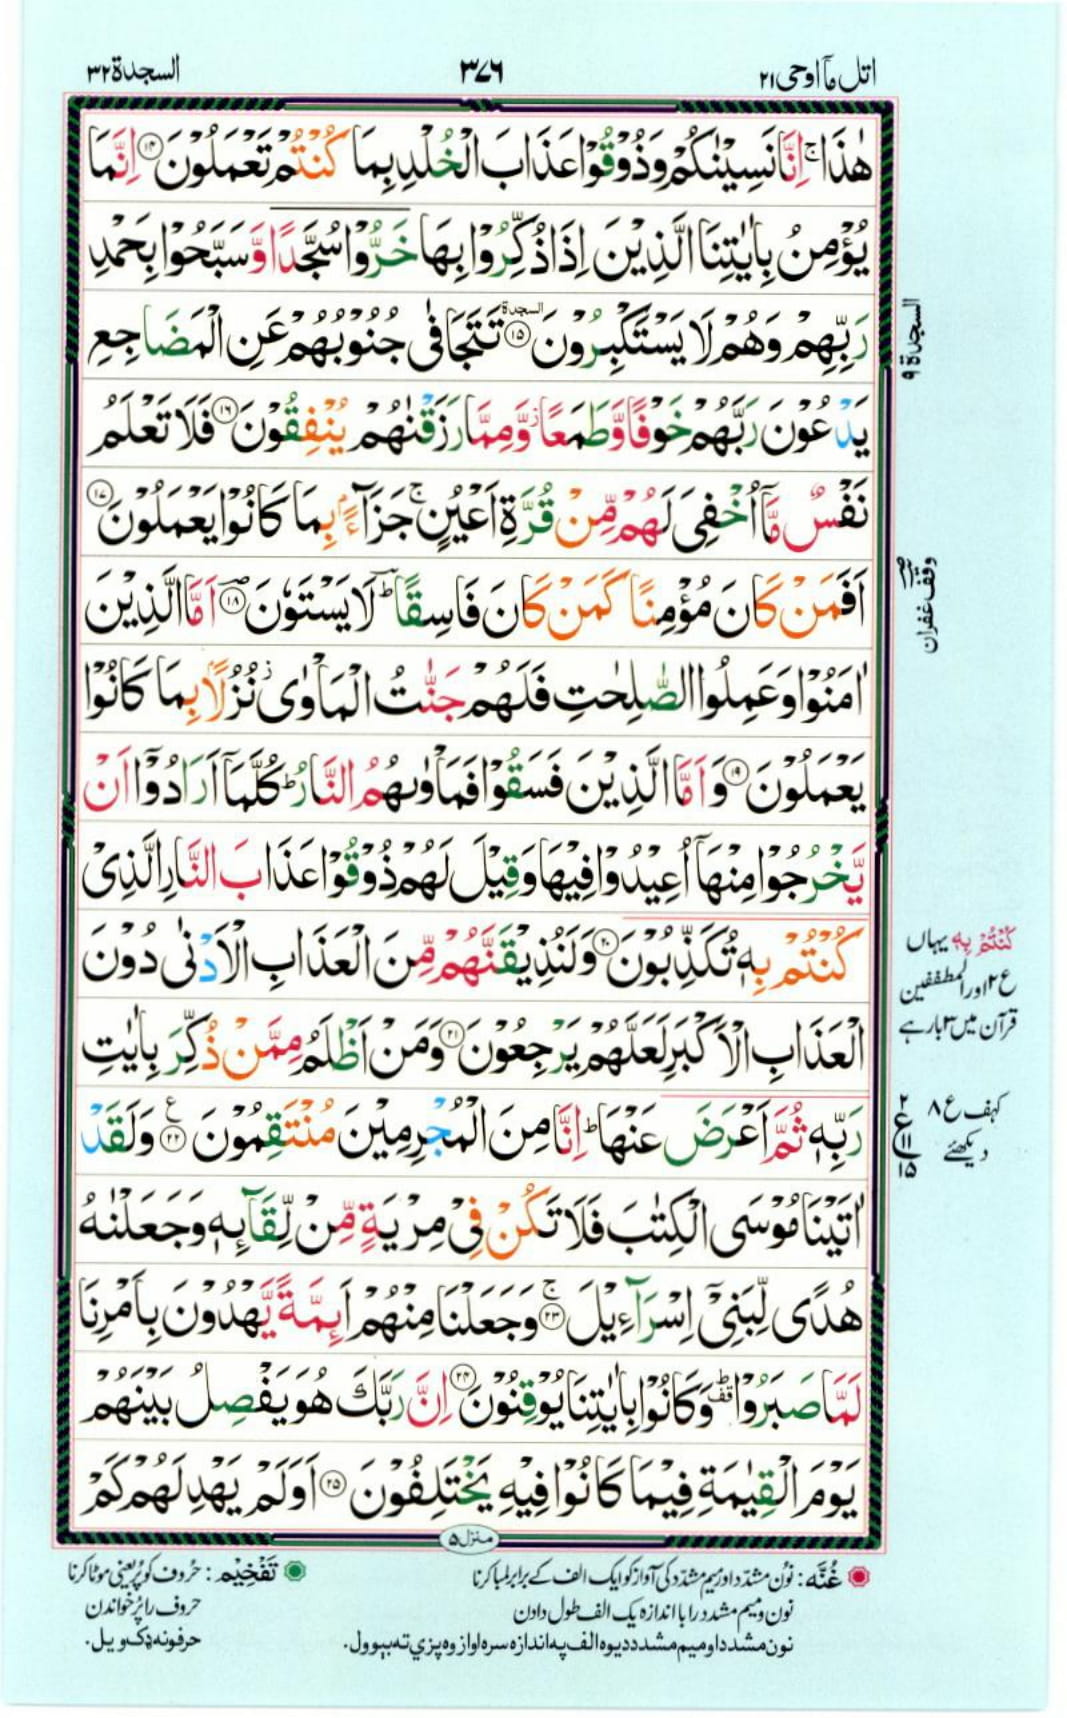 اتل مآ اوحی ٢١
٣٧٦
السجدة ٣٢
هٰذَا ۚ اِنَّا نَسِيْنٰكُمْ وَذُوْقُوْا عَذَابَ الْخُلْدِ بِمَا كُنْتُمْ تَعْمَلُوْنَ ﴿١٤﴾ اِنَّمَا
يُؤْمِنُ بِاٰيٰتِنَا الَّذِيْنَ اِذَا ذُكِّرُوْا بِهَا خَرُّوْا سُجَّدًا وَّسَبَّحُوْا بِحَمْدِ
رَبِّهِمْ وَهُمْ لَا يَسْتَكْبِرُوْنَ ﴿١٥﴾ السجدة تَتَجَافٰى جُنُوْبُهُمْ عَنِ الْمَضَاجِعِ
السجدة ٩
يَدْعُوْنَ رَبَّهُمْ خَوْفًا وَّطَمَعًا ؗ وَّمِمَّا رَزَقْنٰهُمْ يُنْفِقُوْنَ ﴿١٦﴾ فَلَا تَعْلَمُ
نَفْسٌ مَّاۤ اُخْفِىَ لَهُمْ مِّنْ قُرَّةِ اَعْيُنٍ ۚ جَزَآءًۢ بِمَا كَانُوْا يَعْمَلُوْنَ ﴿١٧﴾
اَفَمَنْ كَانَ مُؤْمِنًا كَمَنْ كَانَ فَاسِقًا ؕ لَا يَسْتَوٗنَ ﴿١٨﴾ اَمَّا الَّذِيْنَ
وقف غفران
اٰمَنُوْا وَعَمِلُوا الصّٰلِحٰتِ فَلَهُمْ جَنّٰتُ الْمَاْوٰى ؗ نُزُلًۢا بِمَا كَانُوْا
يَعْمَلُوْنَ ﴿١٩﴾ وَاَمَّا الَّذِيْنَ فَسَقُوْا فَمَاْوٰىهُمُ النَّارُ ؕ كُلَّمَاۤ اَرَادُوْۤا اَنْ
يَّخْرُجُوْا مِنْهَاۤ اُعِيْدُوْا فِيْهَا وَقِيْلَ لَهُمْ ذُوْقُوْا عَذَابَ النَّارِ الَّذِىْ
كُنْتُمْ بِهٖ تُكَذِّبُوْنَ ﴿٢٠﴾ وَلَنُذِيْقَنَّهُمْ مِّنَ الْعَذَابِ الْاَدْنٰى دُوْنَ
كُنْتُمْ بِهٖ یہاں
ع٢ اور المطففین
قرآن میں ٢ بار ہے
الْعَذَابِ الْاَكْبَرِ لَعَلَّهُمْ يَرْجِعُوْنَ ﴿٢١﴾ وَمَنْ اَظْلَمُ مِمَّنْ ذُكِّرَ بِاٰيٰتِ
رَبِّهٖ ثُمَّ اَعْرَضَ عَنْهَا ؕ اِنَّا مِنَ الْمُجْرِمِيْنَ مُنْتَقِمُوْنَ ﴿٢٢﴾ ع وَلَقَدْ
٢
ع ١١
١٥
کہف ع ٨
دیکھئے
اٰتَيْنَا مُوْسَى الْكِتٰبَ فَلَا تَكُنْ فِىْ مِرْيَةٍ مِّنْ لِّقَآئِهٖ وَجَعَلْنٰهُ
هُدًى لِّبَنِىْۤ اِسْرَآءِيْلَ ۚ ﴿٢٣﴾ وَجَعَلْنَا مِنْهُمْ اَئِمَّةً يَّهْدُوْنَ بِاَمْرِنَا
لَمَّا صَبَرُوْا ؕ قف وَكَانُوْا بِاٰيٰتِنَا يُوْقِنُوْنَ ﴿٢٤﴾ اِنَّ رَبَّكَ هُوَ يَفْصِلُ بَيْنَهُمْ
يَوْمَ الْقِيٰمَةِ فِيْمَا كَانُوْا فِيْهِ يَخْتَلِفُوْنَ ﴿٢٥﴾ اَوَلَمْ يَهْدِ لَهُمْ كَمْ
منزل ٥
غُنَّه : نون مشدد اور میم مشدد کی آواز کو ایک الف کے برابر لمبا کرنا
نون و میم مشدد را با اندازہ یک الف طول دادن
نون مشدد او میم مشدد دیوہ الف په اندازہ سره اواز وه پزې ته بیوول.
تَفْخِيْم : حروف کو پُر یعنی موٹا کرنا
حروف را پُر خواندن
حرفونه ډک ویل.